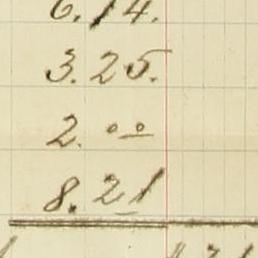 6.14.
3.25.
2.00
8.21